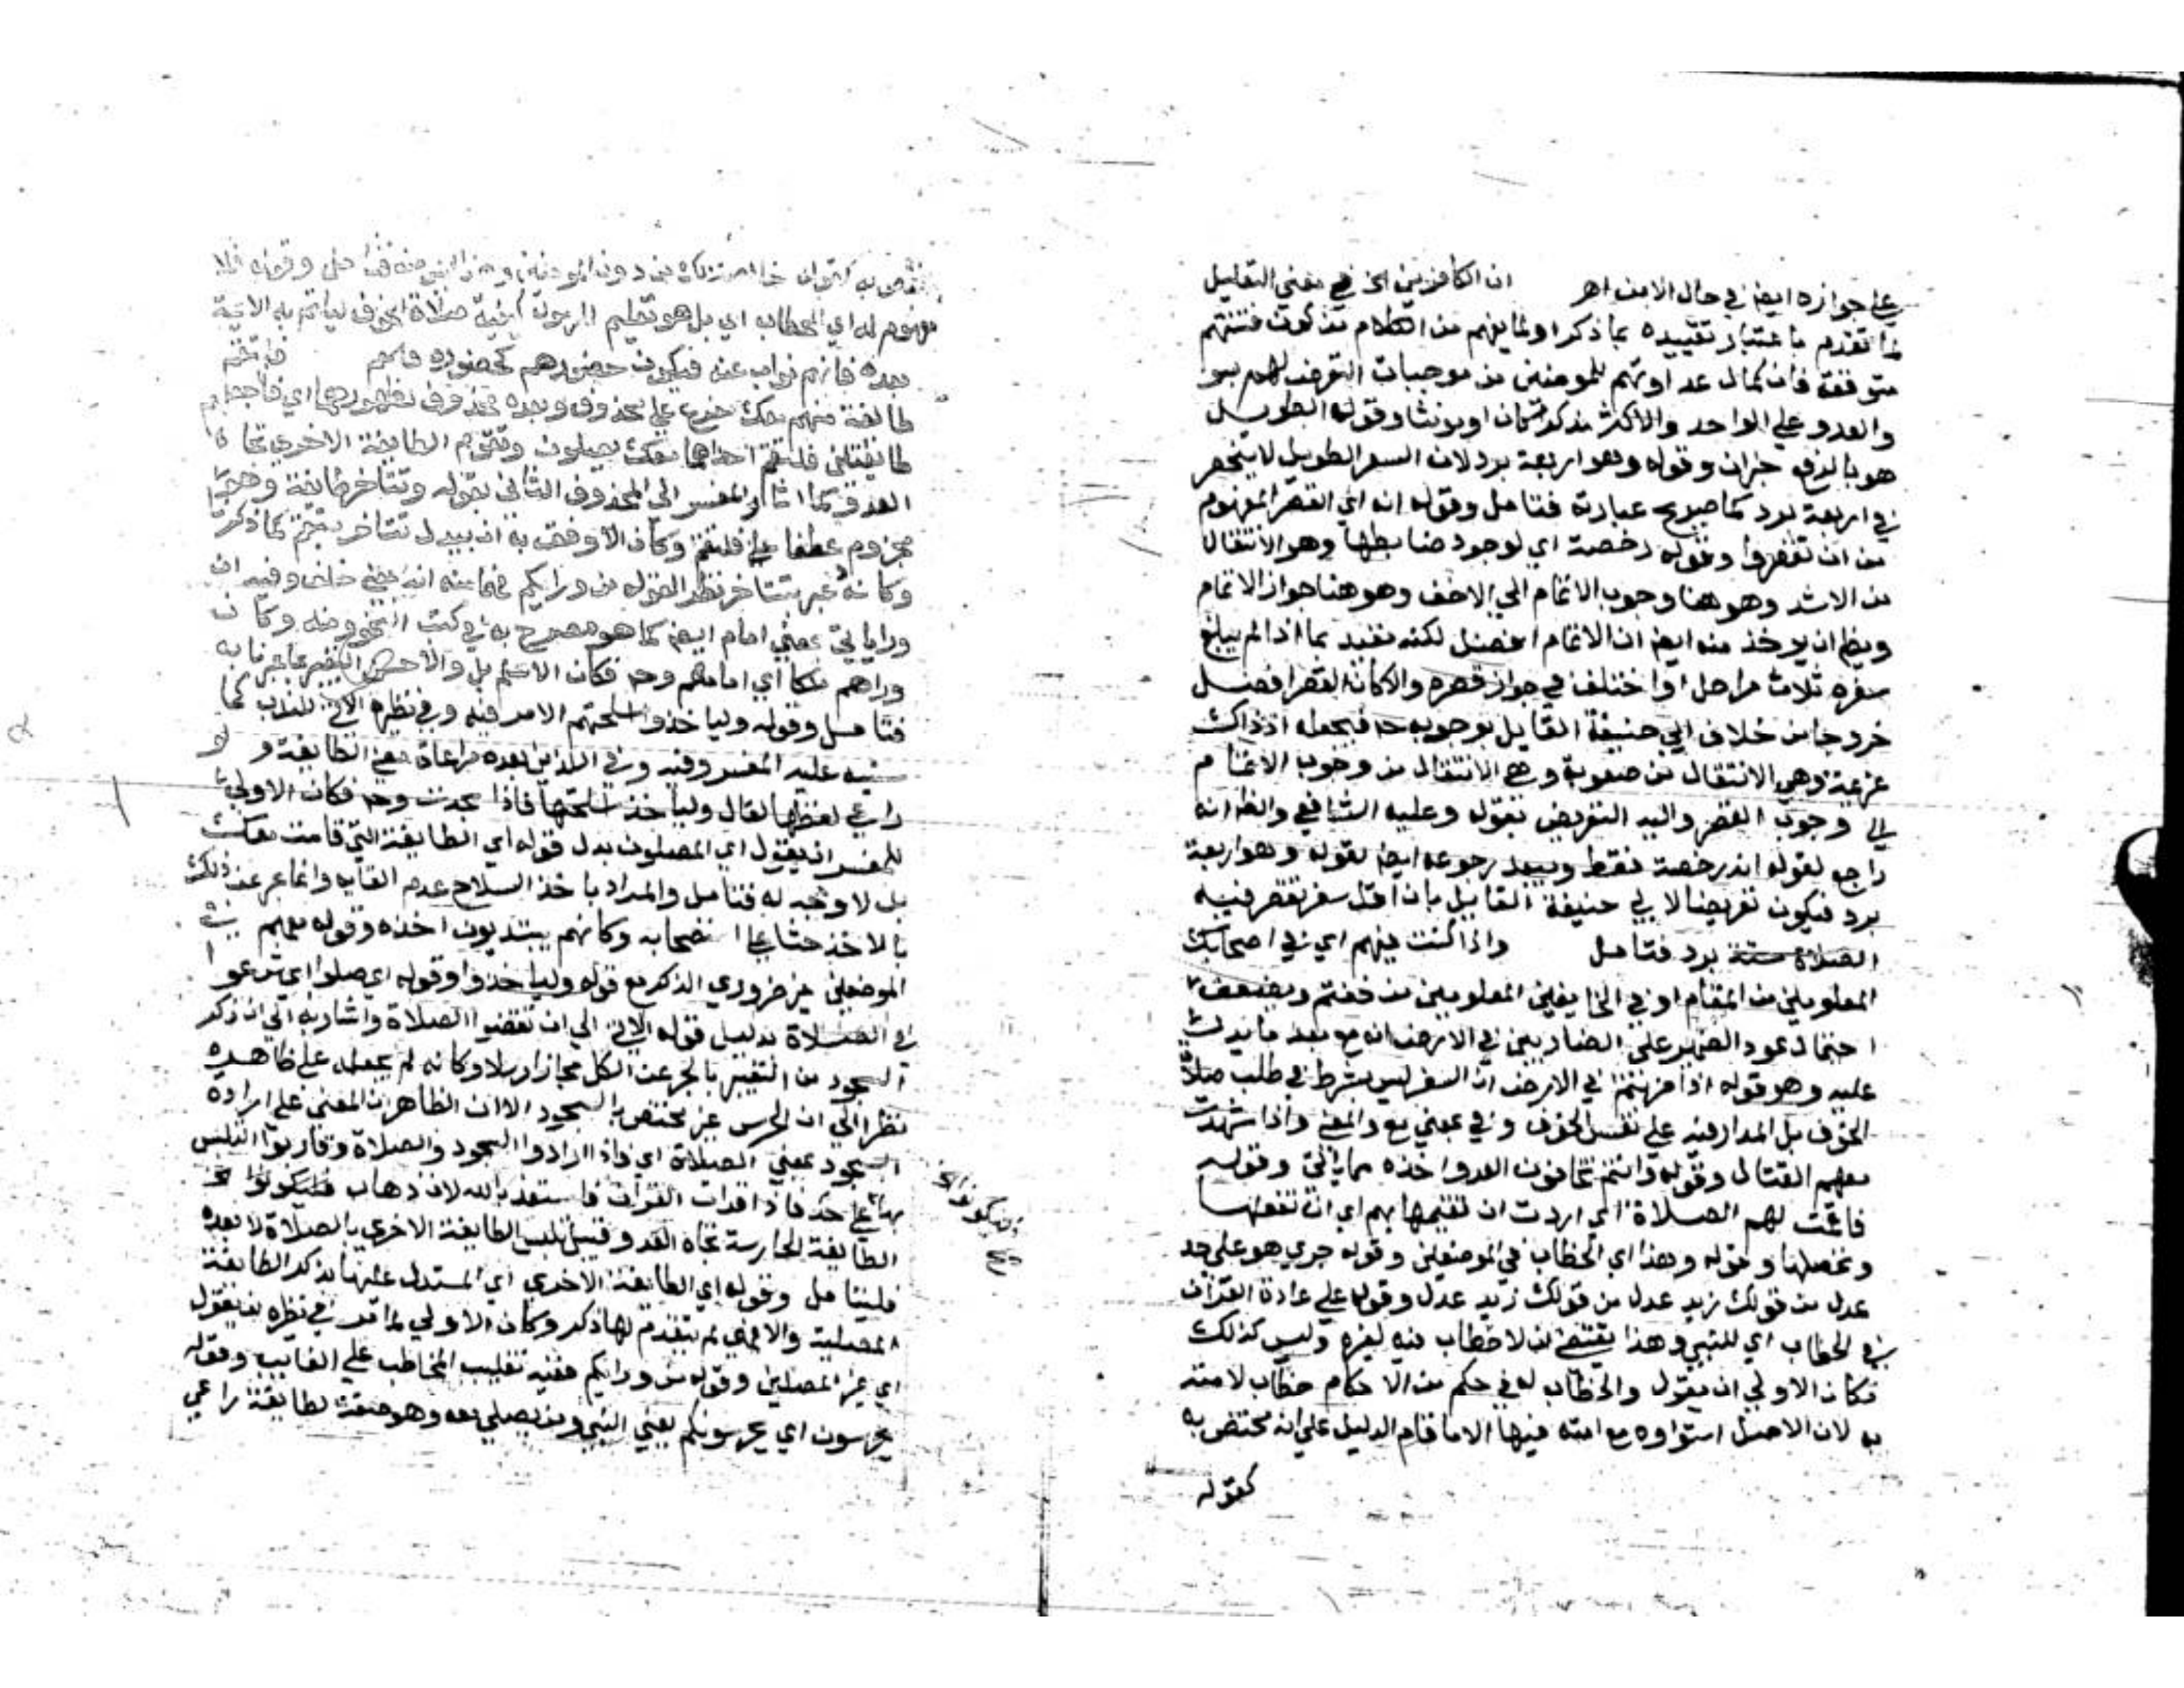 علي جوازه ايض في حال الامن اهـ ان الكافرين الخ في معني التعليل
لما تقدم باعتبار تقييده بما ذكر او لما يفهم من الكلام من كون فتنتهم
متوقعة فان كمال عداوتهم للمومنين من موجبات التعرض لهم بسو
والعدو علي الواحد والاكثر مذكر كان او مونثا وقوله الطويل
هو بالرفع خبران وقوله وهو اربعة برد لان السفر الطويل لا ينحصر
في اربعة برد كما صريح عبارته فتامل وقوله انه اي القصر المفهوم
من ان تقصروا وقوله رخصة اي لوجود ضابطها وهو الانتقال
من الاشد وهو هنا وجوب الاتمام الي الاخف وهو هنا جواز الاتمام
وينظر ان يوخذ منه ايض ان الاتمام افضل لكنه مقيد بما اذا لم يبلغ
سفره ثلاث مراحل او اختلف في جواز قصره والا كان القصر افضل
خروجا من خلاف ابي حنيفة القايل بوجوبه ح فيجعله اذ ذاك
عزيمة وهي الانتقال من صعوبة وهي الانتقال من وجوب الاتمام
الي وجوب القصر واليه التعريض بقوله وعليه الشافعي والظ انه
راجع لقوله انه رخصة فقط ويبعد رجوعه ايض لقوله وهو اربعة
برد فيكون تعريضا لابي حنيفة القايل بان اقل سفر تقصر فيه
الصلاة ستة برد فتامل واذا كنت فيهم اي في اصحابك
المعلومين من المقام او في الخايفين المعلومين من خفتم ويضعف
احتمال عود الضمير علي الضاربين في الارض انه مع بعد ما يدل
عليه وهو قوله اذا ضربتم في الارض ان السفر ليس بشرط في طلب صلاة
الخوف بل المدار فيه علي نفس الخوف وفي بمعني مع والمعني واذا شهدت
معهم القتال وقوله وانتم تخافون العدو اخذه مما ياتي وقوله
فاقمت لهم الصلاة اي اردت ان تقيمها بهم اي ان تفعلها
وتحصلها وقوله وهذا اي الخطاب في الموضعين وقوله جري هو علي حد
عدل من قولك زيد عدل من قولك زيد عدل وقوله علي عادة القران
في الخطاب اي للنبي وهذا يقتضي ان لا خطاب فيه لغيره وليس كذلك
فكان الاولي ان يقول والخطاب له في حكم من الاحكام خطاب لامته
به لان الاصل استواوه مع امته فيها الا ما قام الدليل علي انه مختص به
كقوله
خالصة لك من دون المومنين وقوله فلا
مفهوم له اي الخطاب اي بل هو تعليم الرسول كيفية صلاة الخوف لياتم به الايمة
بعده فانهم نواب عنه فيكون حضورهم كحضوره فافهم فلتقم
طائفة منهم معك
طايفتين فلتقم احداهما معك يصلون وتقوم الطايفة الاخري تجاه
العدو كما اشار المفسر الي المحذوف الثاني بقوله وتتاخر طائفة وهو
مجزوم عطفا علي فلتقم وكان الاوفق به ان يبدل تتاخر بتقم كما ذكرنا
وكانه عبر بتتاخر نظرا لقوله من ورايكم فهما منه انه بمعني خلف وفيه ان
ورا ياتي بمعني امام ايض كما هو مصرح به في كتب النحو ومنه وكان
وراهم ملك اي امامهم وح فكان الاسلم بل والاحسن التعبير بما عبرنا به
فتامل وقوله ولياخذوا اسلحتهم الامر فيه وفي نظيره الاتي للندب كما
سينبه عليه المفسر وفيه وفي اللذين بعده مراعاة معني الطايفة ولو
راعي لفظها لقال ولتاخذ اسلحتها فاذا سجدت وح فكان الاولي
للمفسر ان يقول اي المصلون بدل قوله اي الطايفة التي قامت معك
بل لا وجه له فتامل والمراد باخذ السلاح عدم القايه وانما عبر عن ذلك
بالاخذ حثا علي استصحابه وكانهم يبتديون اخذه وقوله معهم في
الموضعين غير ضروري الذكر مع قوله ولياخذوا وقوله اي صلوا اي شرعوا
في الصلاة بدليل قوله الاتي الي ان تقضوا الصلاة واشار به الي ان ذكر
السجود من التعبير بالجزء عن الكل مجازا مرسلا وكانه لم يحمله علي ظاهره
نظرا الي ان الحرس غير مختص بالسجود الا ان الظاهر ان المعني علي ارادة
السجود بمعني الصلاة اي فاذا ارادوا السجود والصلاة وقاربوا التلبس
بها علي حد فاذا قرات القران فاستعذ بالله لان ذهاب
الطايفة الحارسة تجاه العدو قبيل تلبس الطايفة الاخري بالصلاة لا بعده
فليتامل وقوله اي الطايفة الاخري اي المستدل عليها بذكر الطايفة
المصلية والا فهي لم يتقدم لها ذكر وكان الاولي لما قدر في نظيره ان يقول
اي غير المصلين وقوله من ورايكم ففيه تغليب المخاطب علي الغايب وقوله
يحرسون اي يحرسونكم يعني النبي ومن يصلي معه وهو صفة لطايفة راعي